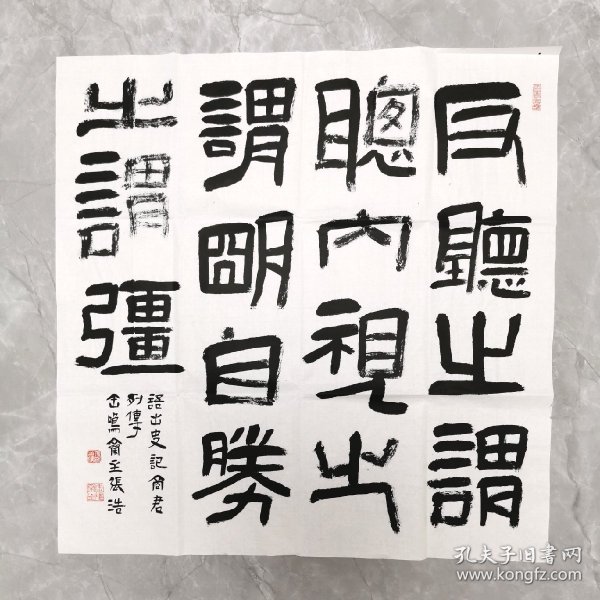 反聽之謂
聰內視之
謂明自勝
之謂彊
語出史記商君
列傳
張浩
孔夫子旧书网
www.kongfz.com